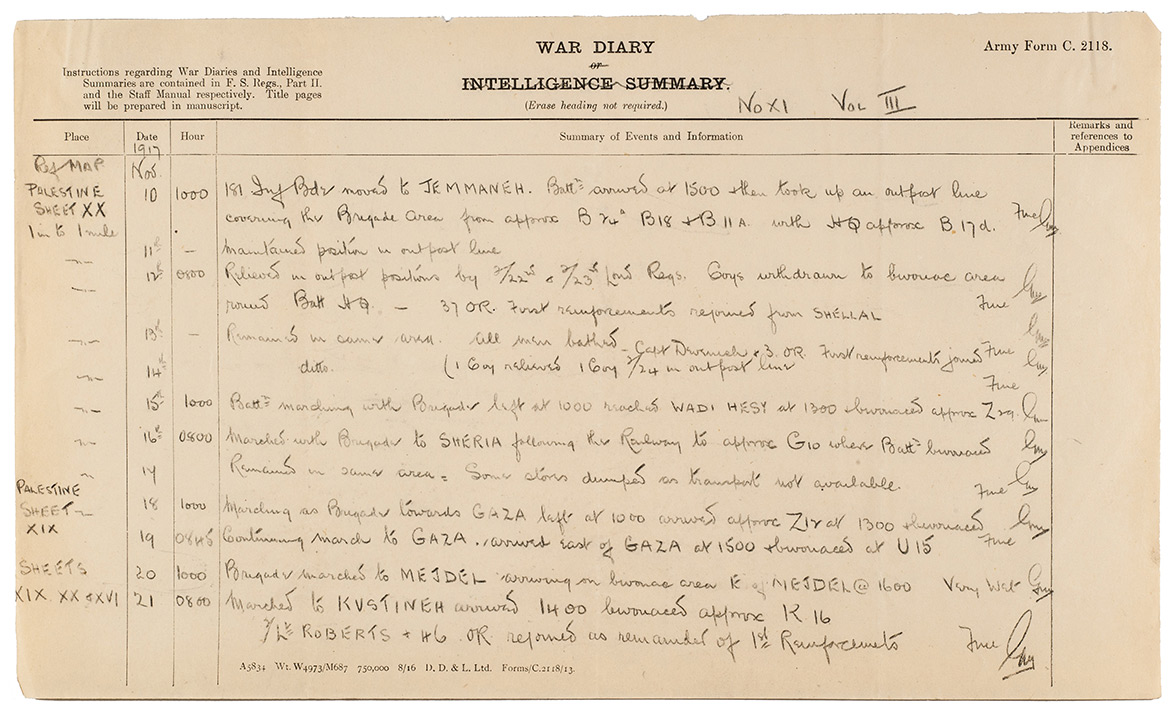 WAR DIARY
or
INTELLIGENCE SUMMARY.
(Erase heading not required.)
Army Form C. 2118.
Instructions regarding War Diaries and Intelligence
Summaries are contained in F. S. Regs., Part II.
and the Staff Manual respectively. Title pages
will be prepared in manuscript.
No XI Vol III
Place Date Hour Summary of Events and Information Remarks and references to Appendices
1917
Ref MAP Nov.
PALESTINE 10 1000 181 Inf Bde moved to JEMMANEH. Battn arrived at 1500 & then took up an outpost line
SHEET XX
1 in to 1 mile covering the Brigade area from approx B 24a B18 & B 11 A. with HQ approx B.17d. Fine
11th – Maintained position in outpost line
12th 0800 Relieved in outpost positions by 2/22nd & 2/23rd Lond Regs. Coys withdrawn to bivouac area
round Batt HQ. – 37 OR. First reinforcements rejoined from SHELLAL Fine
13th – Remained in same area. All men bathed – Capt Devenish & 3. OR. First reinforcements joined Fine
14th ditto. (1 Coy relieved 1 Coy 2/24 in outpost line
Fine
15th 1000 Battn marching with Brigade left at 1000 reached WADI HESY at 1300 & bivouaced approx Z29.
16th 0800 Marched with Brigade to SHERIA following the Railway to approx G10 where Battn bivouaced
17 Remained in same area = Some stores dumped as transport not available. Fine
PALESTINE
SHEET
XIX
18 1000 Marching as Brigade towards GAZA left at 1000 arrived approx Z12 at 1300 & bivouaced
19 0845 Continuing march to GAZA. arrived East of GAZA at 1500 & bivouaced at U15 Fine
SHEETS 20 1000 Brigade marched to MEJDEL arriving on bivouac area E of MEJDEL @ 1600 Very Wet
XIX XX & XVI 21 0800 Marched to KUSTINEH arrived 1400 bivouaced approx K 16
2/Lt ROBERTS & 46 OR rejoined as remainder of 1st Reinforcements Fine
A5834 Wt. W4973/M687 750,000 8/16 D. D. & L. Ltd. Forms/C.2118/13.